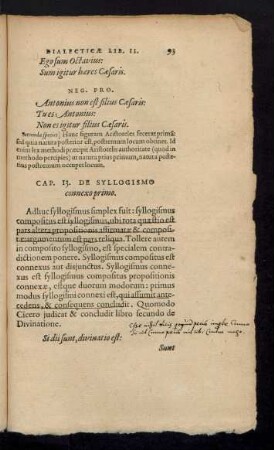 DIALECTICÆ LIB. II. 93
Ego sum Octavius:
Sum igitur hæres Cæsaris.
NEG. PRO.
Antonius non est filius Cæsaris:
Tu es Antonius:
Non es igitur filius Cæsaris.
Secunda species) Hanc figuram Aristoteles fecerat primā:
sed quia natura posterior est, postremum locum obtinet. Id
enim lex methodi præcepit Aristotelis authoritate (quod in
methodo percipies) ut natura prior primum, natura poste-
rius postremum occupet locum.
CAP. IJ. DE SYLLOGISMO
connexo primo.
Adhuc syllogismus simplex fuit: syllogismus
compositus est syllogismus, ubi tota quæstio est
pars altera propositionis affirmatæ & composi-
tæ: argumentum est pars reliqua. Tollere autem
in composito syllogismo, est specialem contra-
dictionem ponere. Syllogismus compositus est
connexus aut disjunctus. Syllogismus conne-
xus est syllogismus compositus propositionis
connexæ, estque duorum modorum: primus
modus syllogismi connexi est, qui assumit ante-
cedens, & consequens concludit. Quomodo
Cicero judicat & concludit libro secundo de
Divinatione.
Si dii sunt, divinatio est:
Sunt